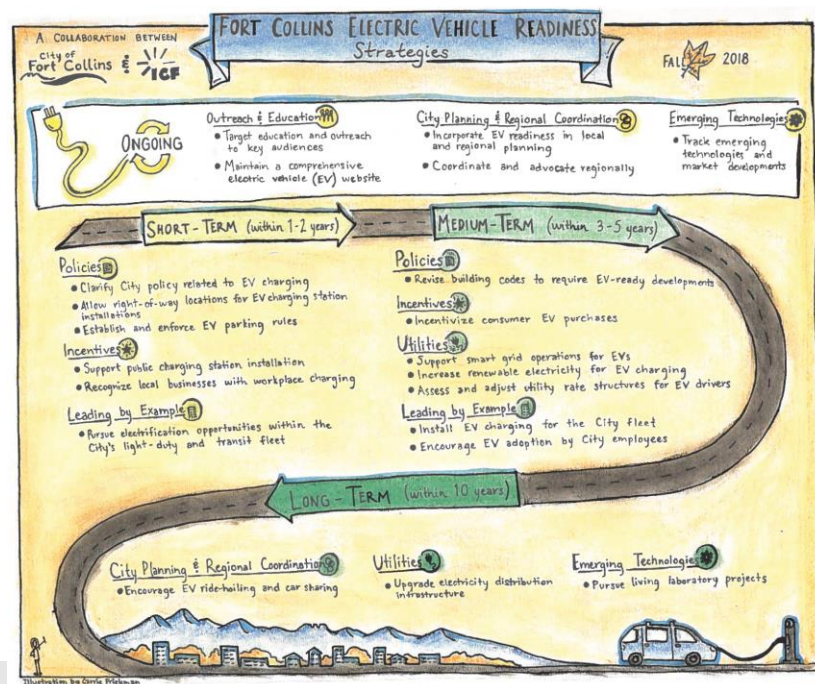 FORT COLLINS ELECTRIC VEHICLE READINESS
Strategies
A COLLABORATION BETWEEN
City of
Fort Collins & ICF
FALL 2018
ONGOING
Outreach & Education
• Target education and outreach
to key audiences
• Maintain a comprehensive
electric vehicle (EV) website
City Planning & Regional Coordination
• Incorporate EV readiness in local
and regional planning
• Coordinate and advocate regionally
Emerging Technologies
• Track emerging
technologies and
market developments
SHORT-TERM (within 1-2 years)
Policies
• Clarify City policy related to EV charging
• Allow right-of-way locations for EV charging station
installations
• Establish and enforce EV parking rules
Incentives
• Support public charging station installation
• Recognize local businesses with workplace charging
Leading by Example
• Pursue electrification opportunities within the
City's light-duty and transit fleet
MEDIUM-TERM (within 3-5 years)
Policies
• Revise building codes to require EV-ready developments
Incentives
• Incentivize consumer EV purchases
Utilities
• Support smart grid operations for EVs
• Increase renewable electricity for EV charging
• Assess and adjust utility rate structures for EV drivers
Leading by Example
• Install EV charging for the City fleet
• Encourage EV adoption by City employees
LONG-TERM (within 10 years)
City Planning & Regional Coordination
• Encourage EV ride-hailing and car sharing
Utilities
• Upgrade electricity distribution
infrastructure
Emerging Technologies
• Pursue living laboratory projects
Illustration by Carrie